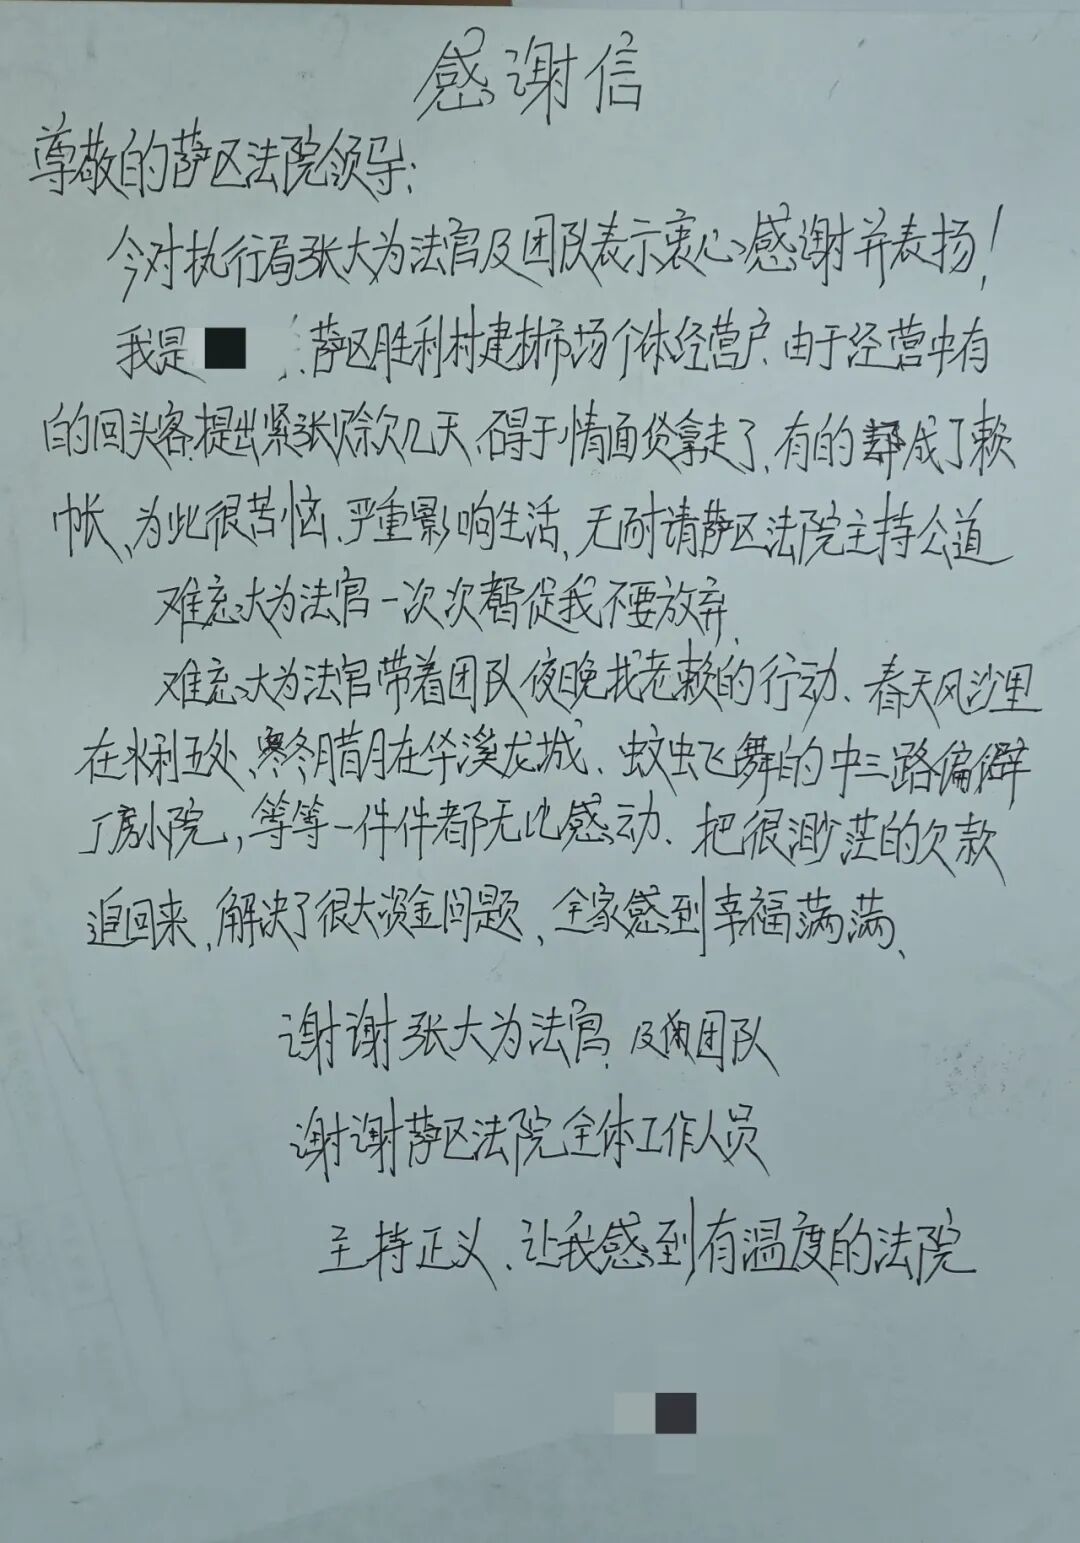 感谢信
尊敬的萨区法院领导:
今对执行局张大为法官及团队表示衷心感谢并表扬!
我是 萨区胜利村建材市场个体经营户.由于经营中有
的回头客.提出紧张赊欠几天、碍于情面货拿走了.有的都成了赖
帐、为此很苦恼.严重影响生活,无耐请萨区法院主持公道
难忘大为法官一次次督促我不要放弃.
难忘大为法官带着团队夜晚找老赖的行动、春天风沙里
在水利五处、寒冬腊月在华溪龙城、蚊虫飞舞的中三路偏僻
厂房小院,等等一件件都无比感动、把很渺茫的欠款
追回来,解决了很大资金问题、全家感到幸福满满、
谢谢张大为法官.及团队
谢谢萨区法院全体工作人员
主持正义、让我感到有温度的法院